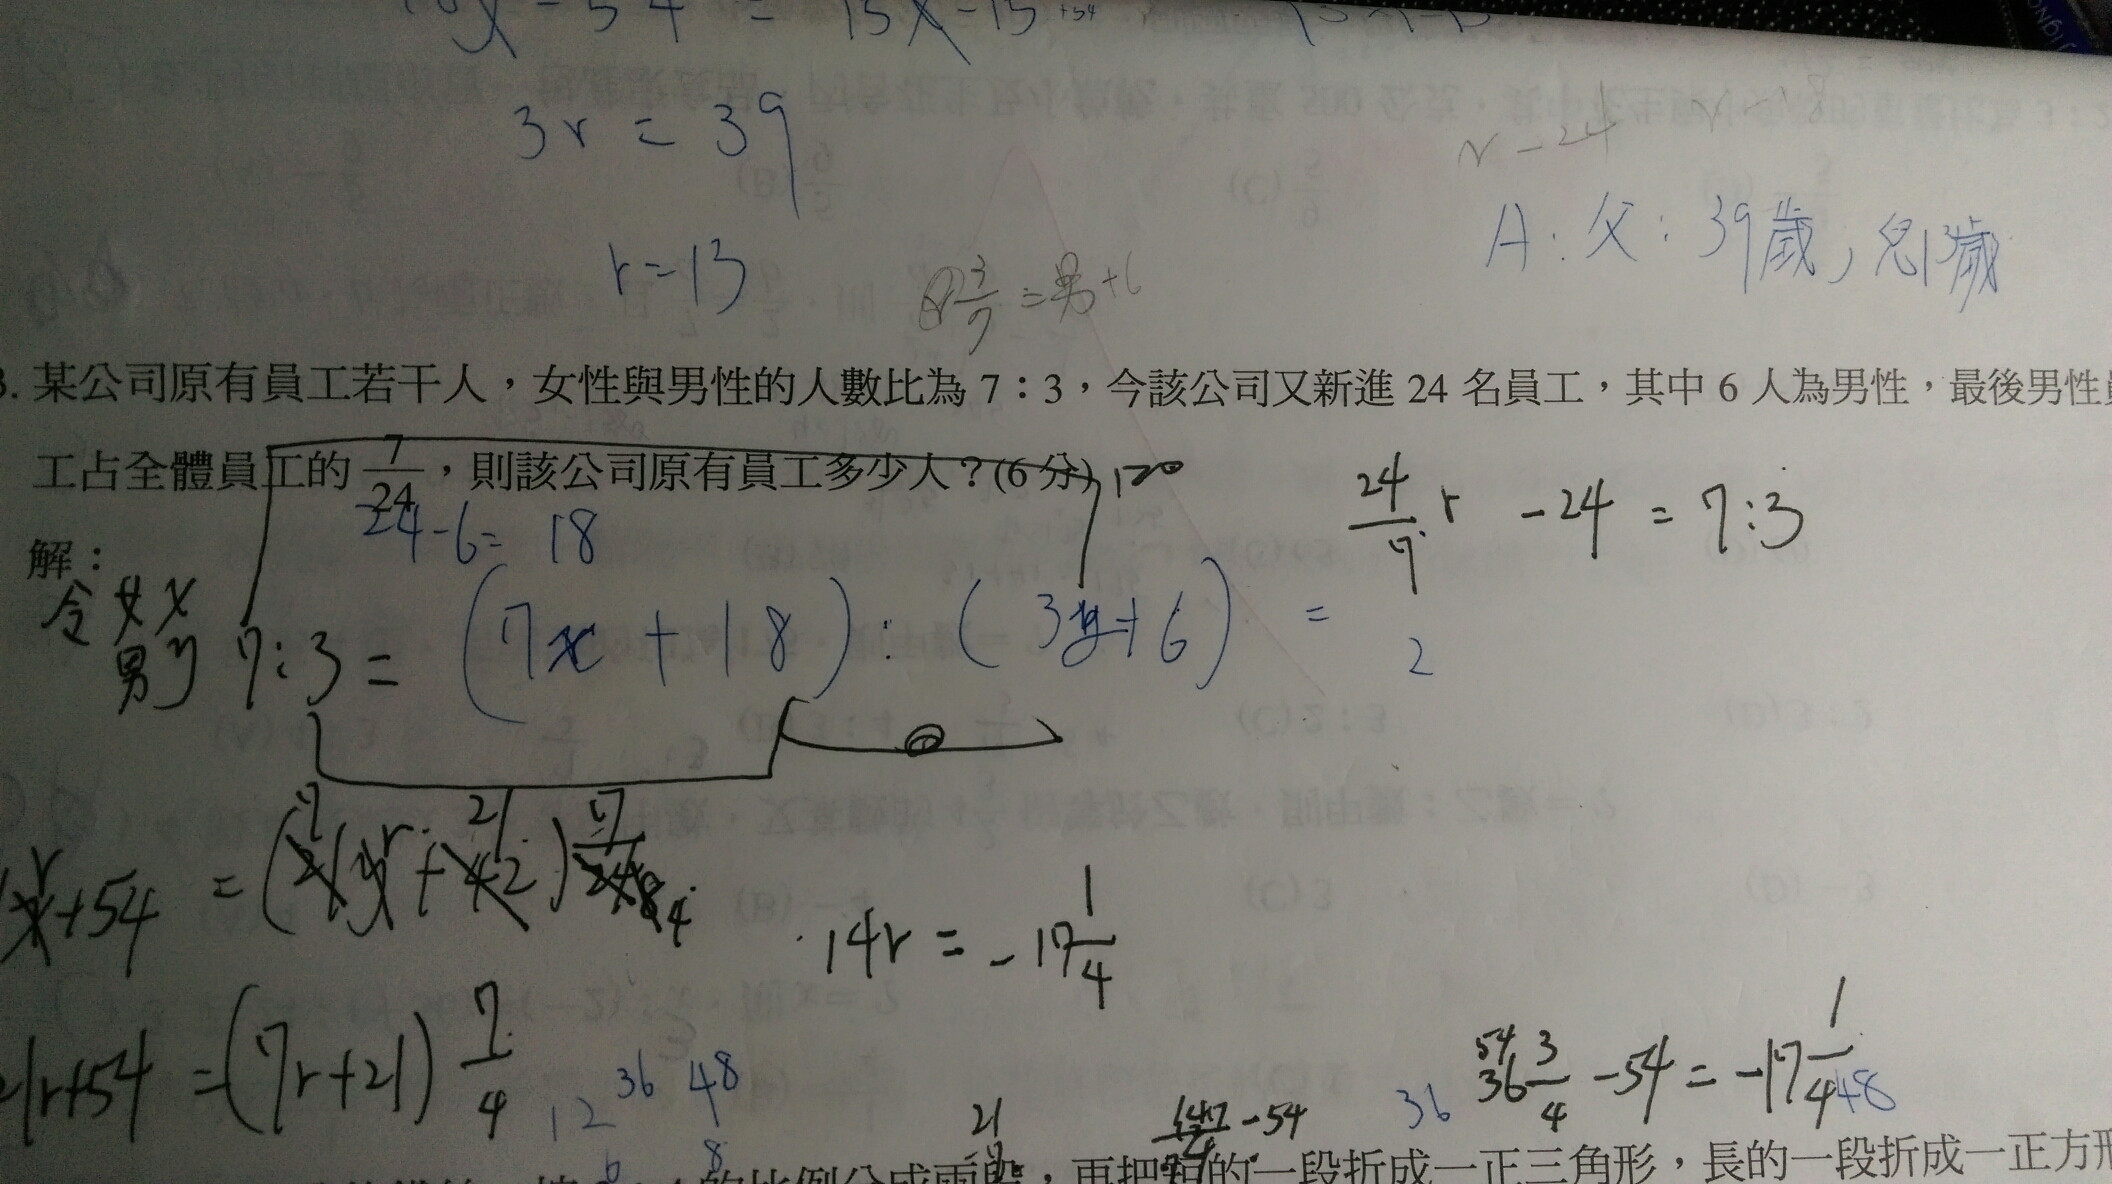 3r = 39
r = 13
r - 24
A: 父: 39歲, 兒13歲
3/7 = 男+6
3. 某公司原有員工若干人，女性與男性的人數比為 7：3，今該公司又新進 24 名員工，其中 6 人為男性，最後男性員
工占全體員工的 7/24，則該公司原有員工多少人？(6 分) 120
24-6= 18
24/7 r - 24 = 7:3
解：
令 女 x
男 y 7:3 = (7x + 18) : (3y+6) =
2
+54 = (7r + 21) 7/4
14r = -17 1/4
21r+54 = (7r+21) 7/4
36 3/4 - 54 = -17 1/4
12 36 48
36 48
21
147/4 - 54
6 8
的比例分成兩段，再把短的一段折成一正三角形，長的一段折成一正方形